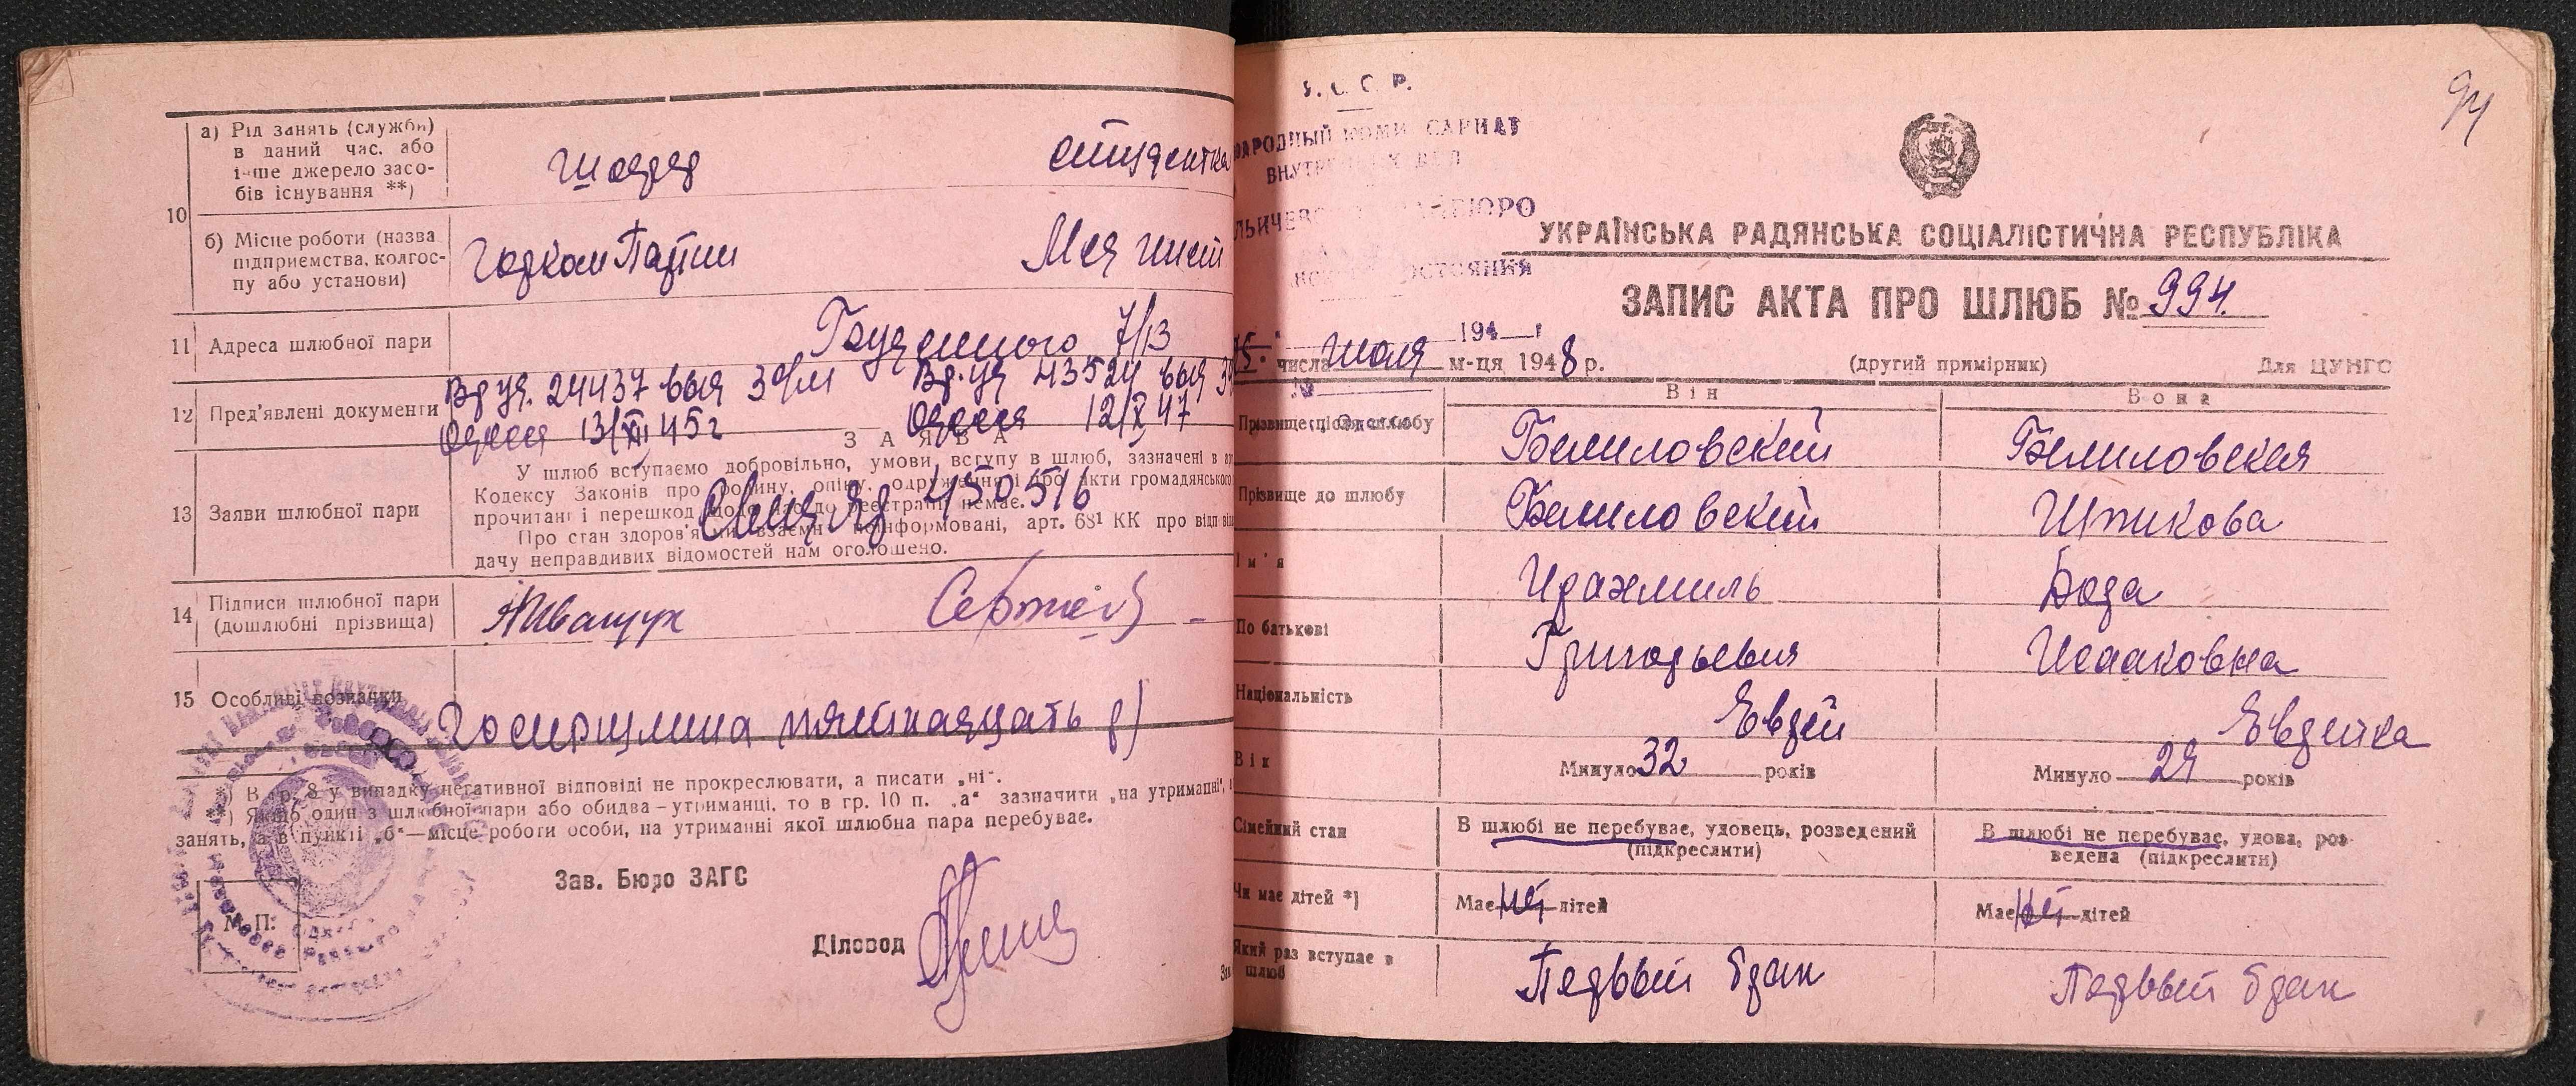 а) Рід занять (служби)
в даний час, або
інше джерело засо-
бів існування **)
шофер
студентка
10
б) Місце роботи (назва
підприємства, колгос-
пу або установи)
Горком Партии
Мед инст
11 Адреса шлюбної пари
Буденного 7/13
12 Пред'явлені документи
Вр. уд. 24437 выд 3 о/м
Одесса 13/XII 45 г
Вр. уд 43524 выд 3
Одесса 12/X 47
ЗАЯВА
13 Заяви шлюбної пари
У шлюб вступаємо добровільно, умови вступу в шлюб, зазначені в
Кодексу Законів про родину, опіку, одруження і про акти громадянського
прочитані і перешкод щодо до реєстрації немає.
Про стан здоров'я ми взаємно поінформовані, арт. 68¹ КК про
дачу неправдивих відомостей нам оголошено.
450516
14 Підписи шлюбної пари
(дошлюбні прізвища)
15 Особливі позначки
Госпошлина пятнадцать р)
*) В гр. 8 у випадку негативної відповіді не прокреслювати, а писати „ні".
**) Якщо один з шлюбної пари або обидва – утриманці, то в гр. 10 п. „а" зазначити „на утриманні",
занять, а в пункті „б"—місце роботи особи, на утриманні якої шлюбна пара перебуває.
Зав. Бюро ЗАГС
М. П.
Діловод
94
С. С. Р.
НАРОДНЫЙ КОМИССАРИАТ
ВНУТРЕННИХ ДЕЛ
УКРАЇНСЬКА РАДЯНСЬКА СОЦІАЛІСТИЧНА РЕСПУБЛІКА
ЗАПИС АКТА ПРО ШЛЮБ № 994.
194 г
15. числа июля м-ця 1948 р.
(другий примірник)
Для ЦУНГО
Він
Вона
Прізвище після шлюбу
Белиловский
Белиловская
Прізвище до шлюбу
Белиловский
Шпикова
Ім'я
Ирахмиль
Бода
По батькові
Григорьевич
Исааковна
Національність
Еврей
Еврейка
Вік
Минуло 32 років
Минуло 24 років
Сімейний стан
В шлюбі не перебуває, удовець, розведений
(підкреслити)
В шлюбі не перебуває, удова, роз-
ведена (підкреслити)
Чи має дітей *)
Має нет дітей
Має нет дітей
Який раз вступає в
шлюб
Первый брак
Первый брак